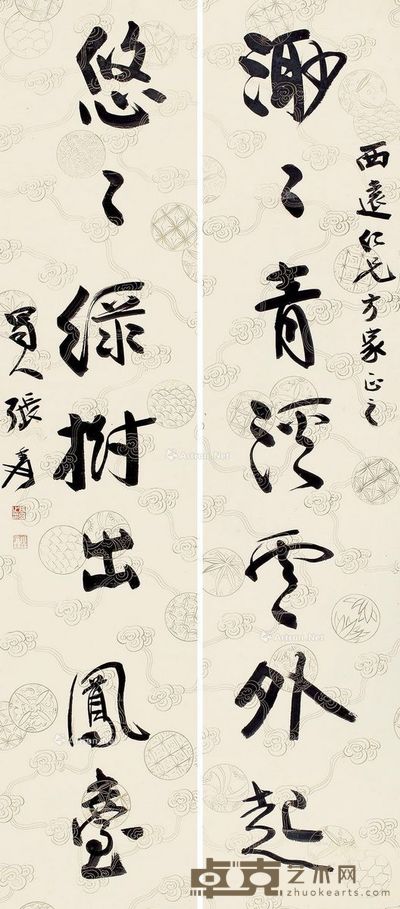 西遠仁兄方家正之
渺〻青溪雲外起
悠〻綠樹出鳳臺
蜀人張爰
Artron.Net
卓克艺术网
zhuokearts.com